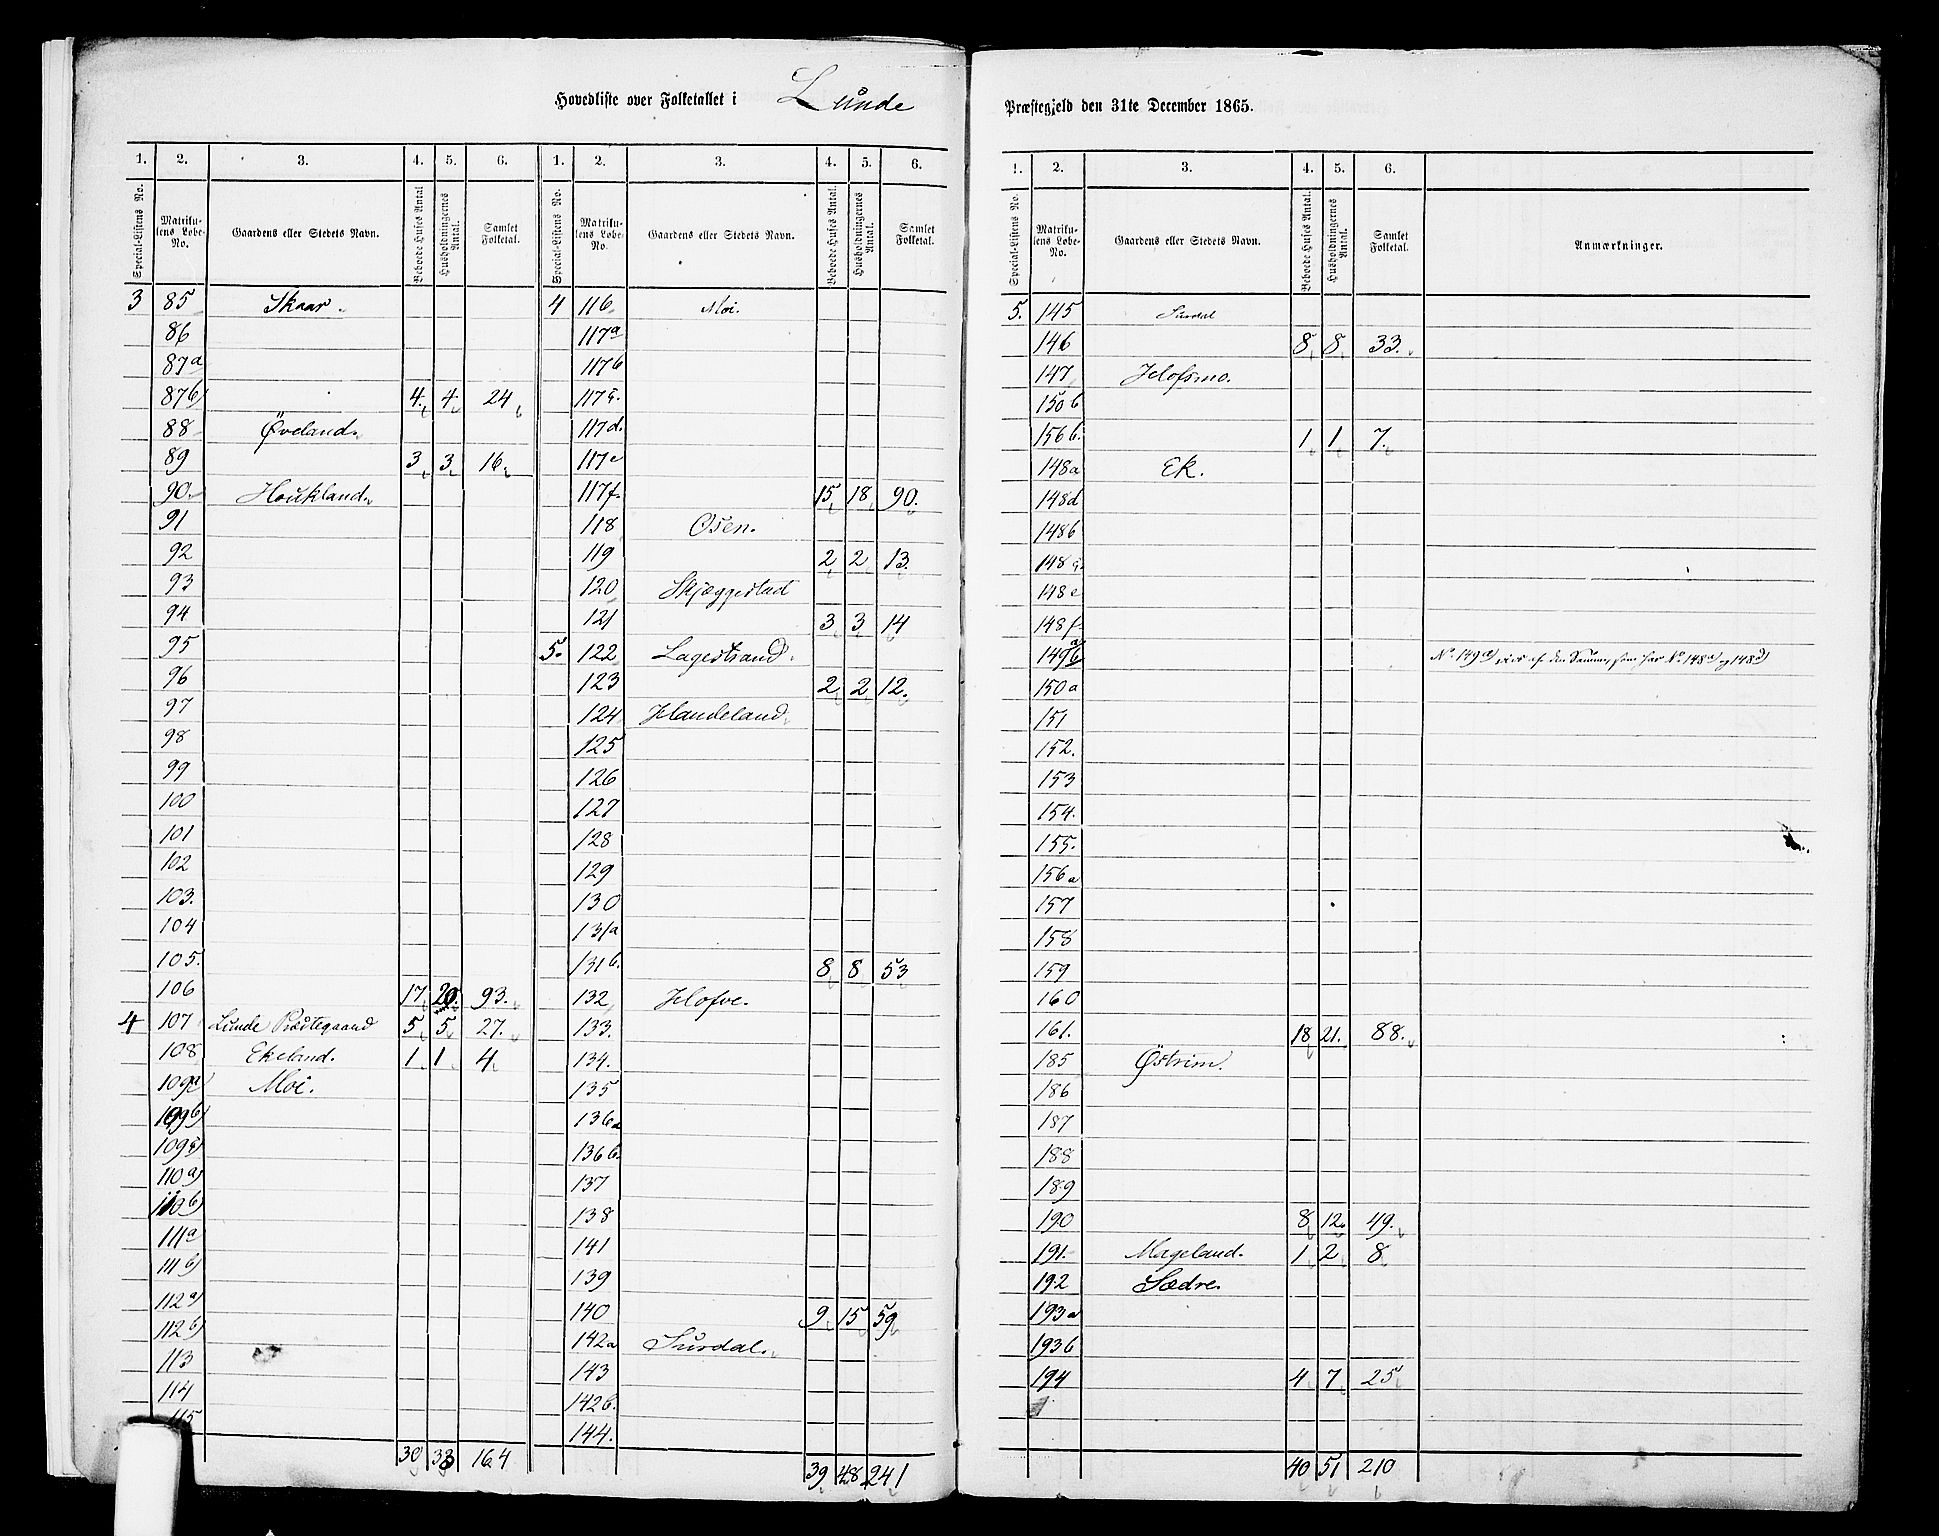 Hovedliste over Folketallet i Lunde Præstegjeld den 31te December 1865.
1. 2. 3. 4. 5. 6. 1. 2. 3. 4. 5. 6.
Special-Listens No. Matrikulens Løbe-No. Gaardens eller Stedets Navn. Beboede Huses Antal. Husholdningernes Antal. Samlet Folketal. Special-Listens No. Matrikulens Løbe-No. Gaardens eller Stedets Navn. Beboede Huses Antal. Husholdningernes Antal. Samlet Folketal.
3 85 Skaar.
86
87a
87b) 4. 4. 24
88 Øveland.
89 3 3. 16.
90. Houkland.
91
92
93
94
95
96
97
98
99
100
101
102
103.
104
105.
106 17. 20. 93.
4 107 Lunde Prædtegaard 5. 5. 27.
108 Ekeland. 1. 1. 4.
109a) Moi.
109b)
109c)
110a)
110b)
111a
111b)
112a)
112b)
113
114
115
30 33 164
4 116 Moi.
117a
117b
117c.
117d.
117e
117f. 15 18 90.
118 Osen.
119 2 2 13.
120 Skjæggestad
121 3 3 14
5. 122 Lagestrand.
123 2 2 12.
124 Handeland
125
126
127
128
129
130
131a
131b. 8 8 53
132 Hofve.
133.
134.
135
136a
136b.
137
138
141
139
140 9 15 59
142a Surdal.
143
142b.
144.
39 48 241
1. 2. 3. 4. 5. 6.
Special-Listens No. Matrikulens Løbe-No. Gaardens eller Stedets Navn. Beboede Huses Antal. Husholdningernes Antal. Samlet Folketal. Anmærkninger.
5. 145 Surdal
146 8 8 33.
147 Hofsmo.
150b
156b. 1 1 7.
148a Ek.
148d
148b
148c.
148e
148f
149a b No. 149a) eies af den Samme, som har No. 148a) og 148d)
150a
151
152.
153
154.
155.
156a
157
158
159
160
161. 18 21. 88.
185 Østrim.
186
187
188
189
190 8 12 49.
191. Mageland. 1 2 8
192 Sædre.
193a
193b
194 4 7 25
40 51 210